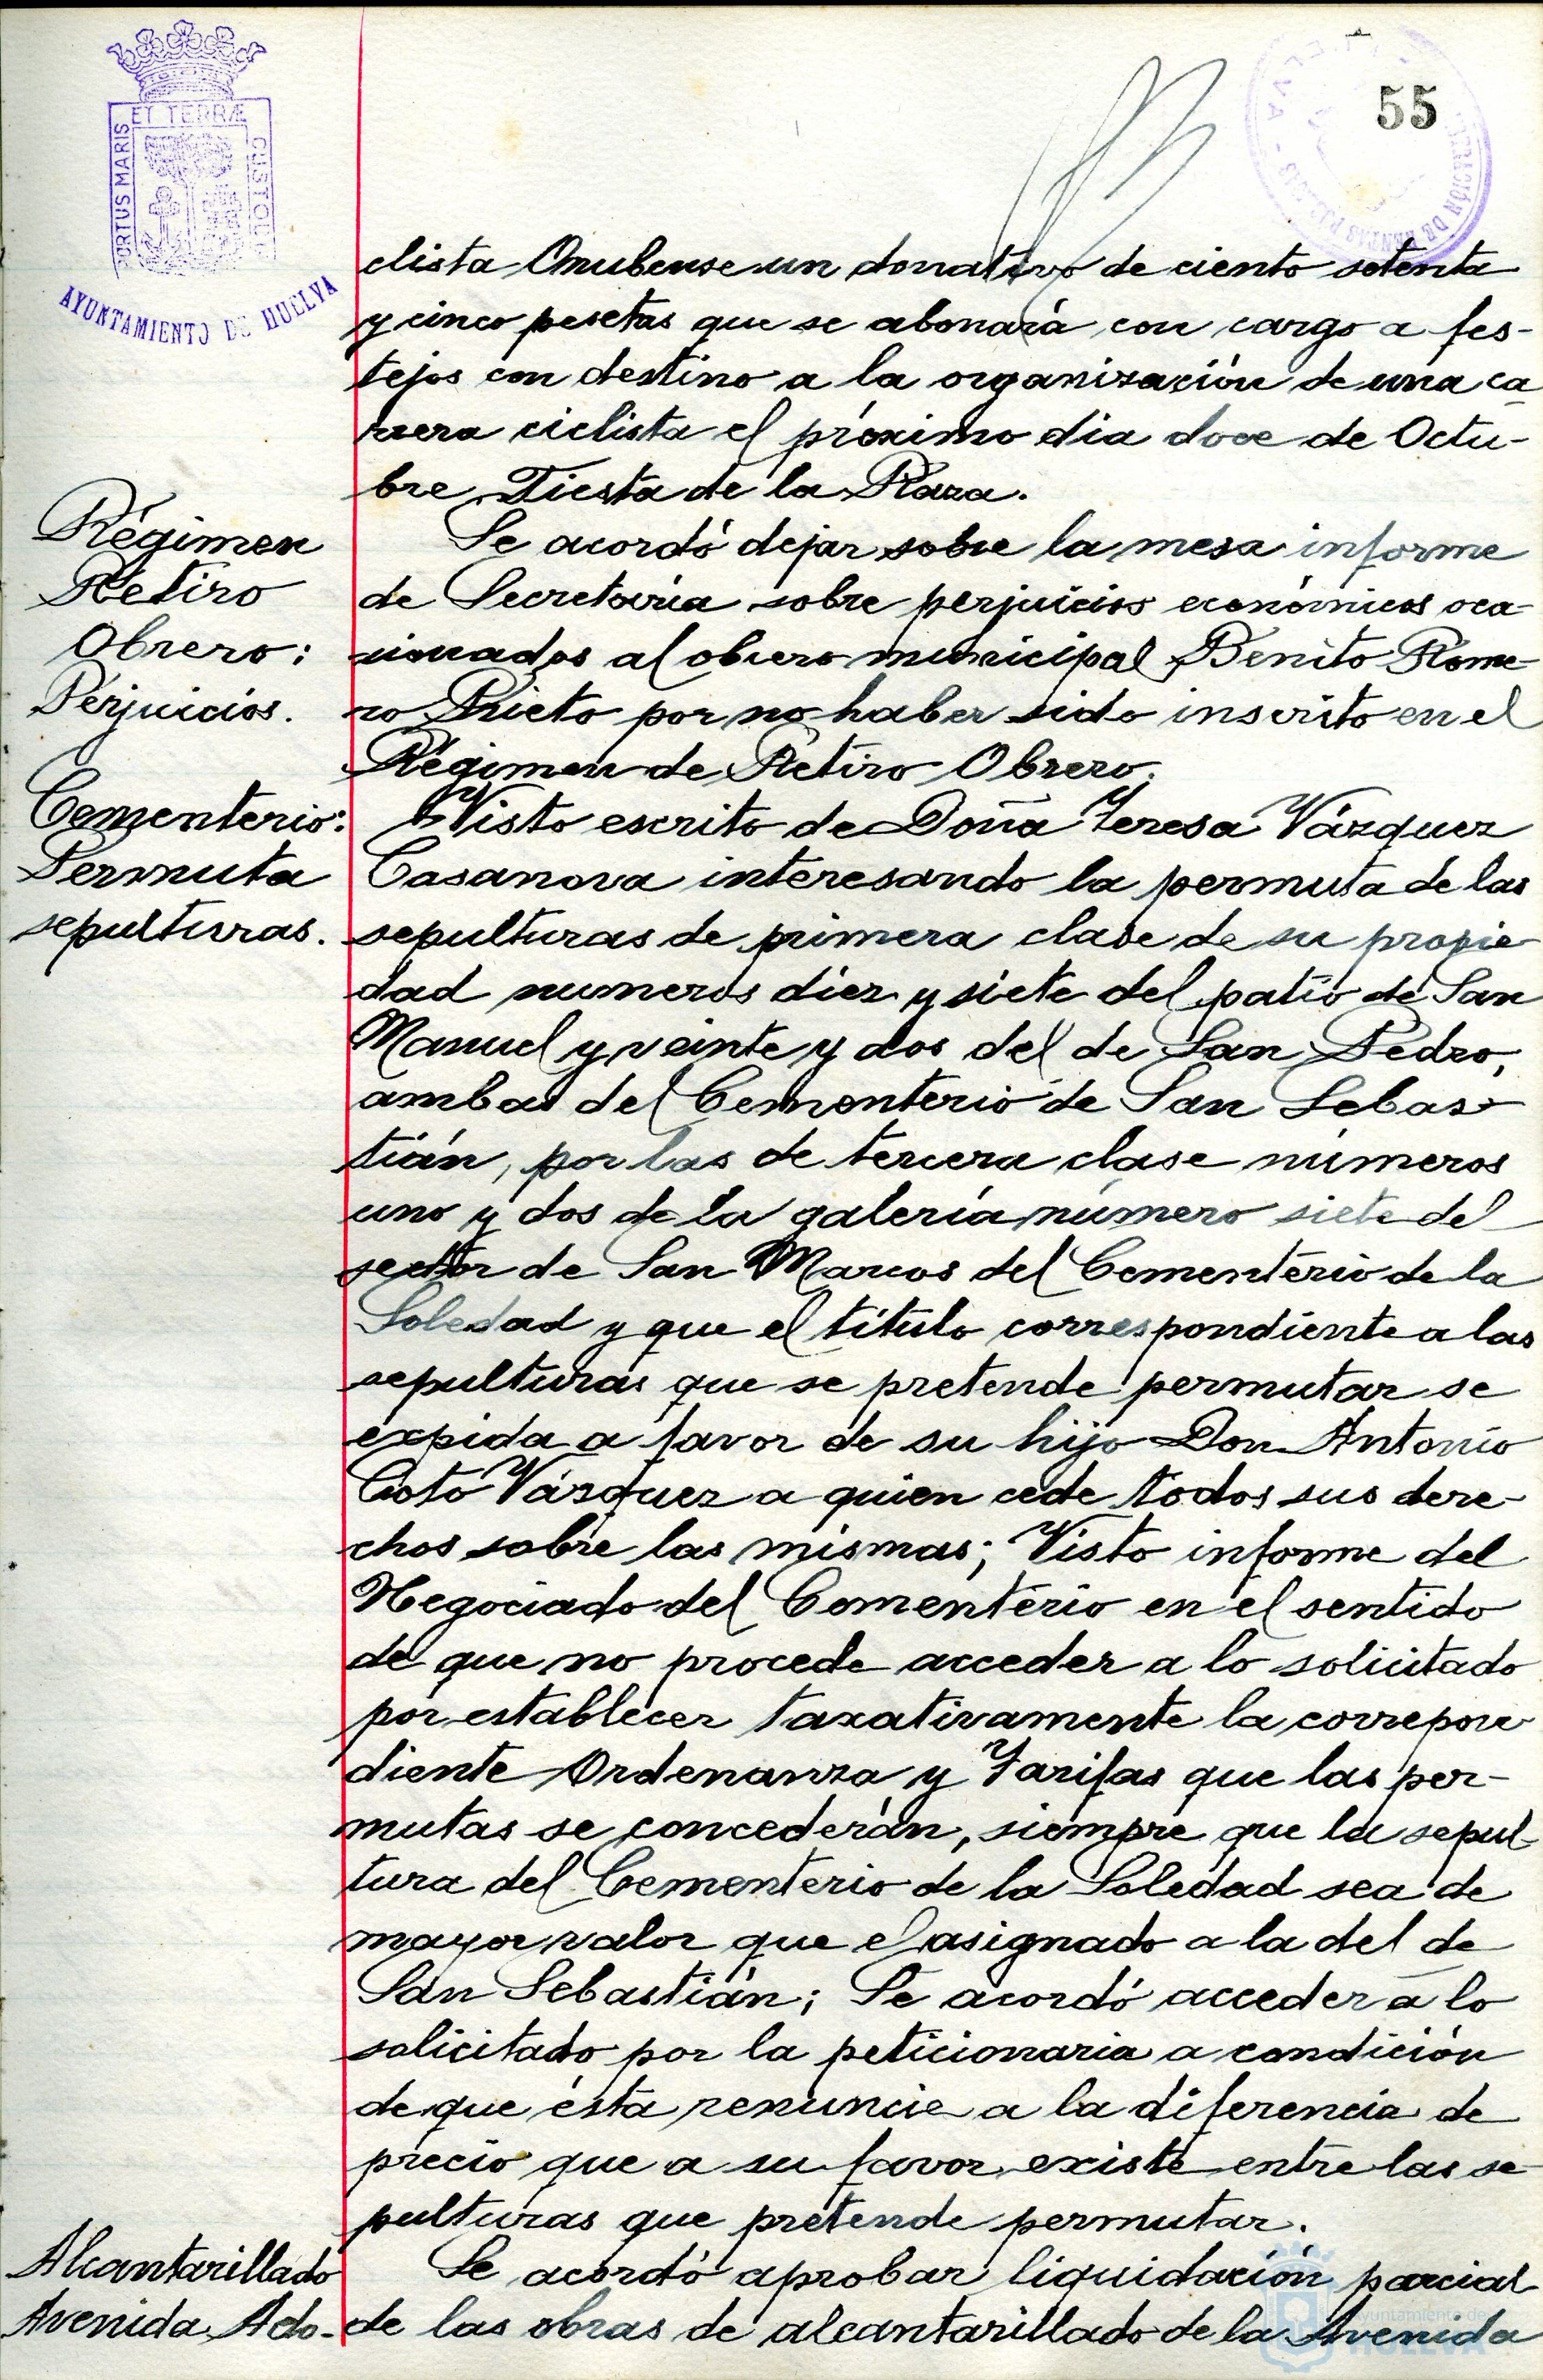 55
ET TERRÆ
PORTUS MARIS
CUSTODIA
AYUNTAMIENTO DE HUELVA
clista Onubense un donativo de ciento setenta
y cinco pesetas que se abonará con cargo a fes-
tejos con destino a la organización de una ca-
rrera ciclista el próximo dia doce de Octu-
bre, Fiesta de la Raza.
Régimen
Retiro
Obrero:
Perjuicios.
Se acordó dejar sobre la mesa informe
de Secretaría sobre perjuicios económicos oca-
sionados al obrero municipal Benito Rome-
ro Prieto por no haber sido inscrito en el
Régimen de Retiro Obrero.
Cementerio:
Permuta
sepulturas.
Visto escrito de Doña Teresa Vázquez
Casanova interesando la permuta de las
sepulturas de primera clase de su propie-
dad numeros diez y siete del patio de San
Manuel y veinte y dos del de San Pedro,
ambas del Cementerio de San Sebas-
tián, por las de tercera clase números
uno y dos de la galería número siete del
sector de San Marcos del Cementerio de la
Soledad y que el título correspondiente a las
sepulturas que se pretende permutar se
expida a favor de su hijo Don Antonio
Coto Vázquez a quien cede todos sus dere-
chos sobre las mismas; Visto informe del
Negociado del Cementerio en el sentido
de que no procede acceder a lo solicitado
por establecer taxativamente la correpon-
diente Ordenanza y Tarifas que las per-
mutas se concederán, siempre que la sepul-
tura del Cementerio de la Soledad sea de
mayor valor que el asignado a la del de
San Sebastián; Se acordó acceder a lo
solicitado por la peticionaria a condición
de que ésta renuncie a la diferencia de
precio que a su favor existe entre las se-
pulturas que pretende permutar.
Alcantarillado
Avenida Ado-
Se acordó aprobar liquidación parcial
de las obras de alcantarillado de la Avenida
Ayuntamiento de
HUELVA